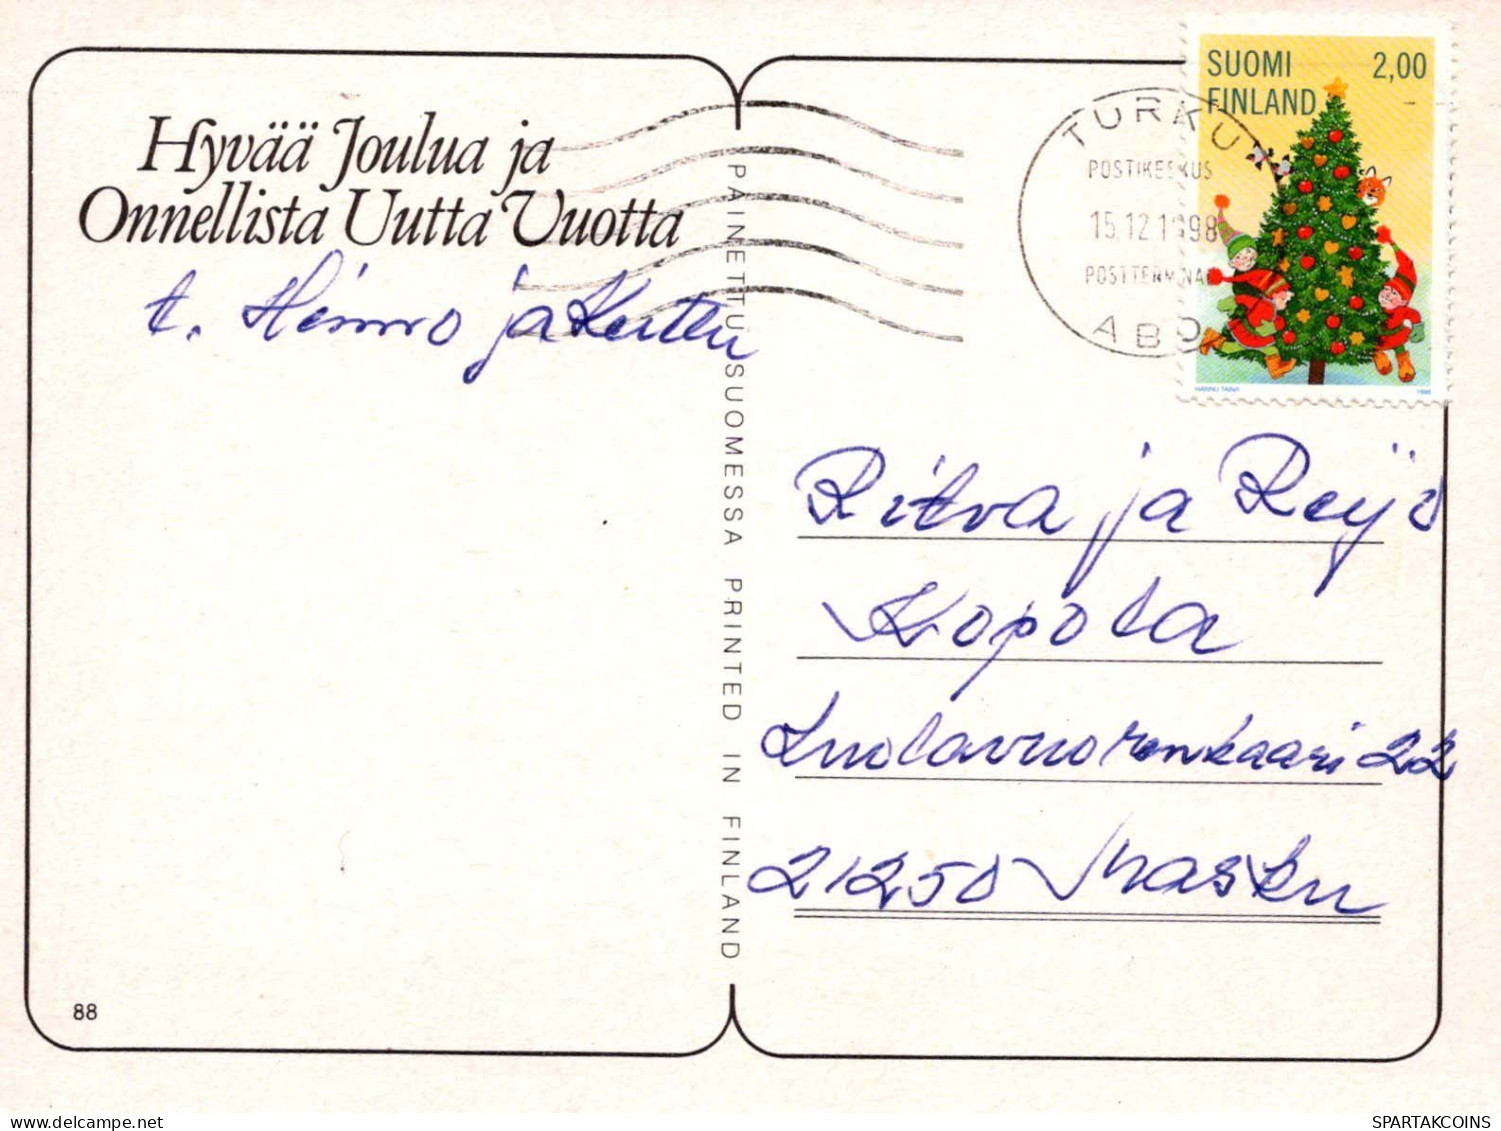 Hyvää Joulua ja
Onnellista Uutta Vuotta
t. Heimo ja Kerttu
88
PAINETTU SUOMESSA PRINTED IN FINLAND
SUOMI 2,00
FINLAND
HANNU TAINA 1998
TURKU
POSTIKESKUS
15.12.1998
POSTTERMINAL
ABO
Ritva ja Reijo
Kopola
Luolavuorenkaari 22
21250 Masku
SPARTAKCOINS